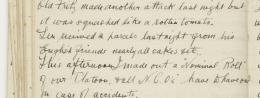 old Fritz made another attack last night but
it was squashed like a rotten tomato.
Len received a parcel last night from his
friends nearly all cakes etc.
This afternoon I made out a "Nominal Roll"
of our Platoon, all N.C.O's have to have one
in case of accidents.